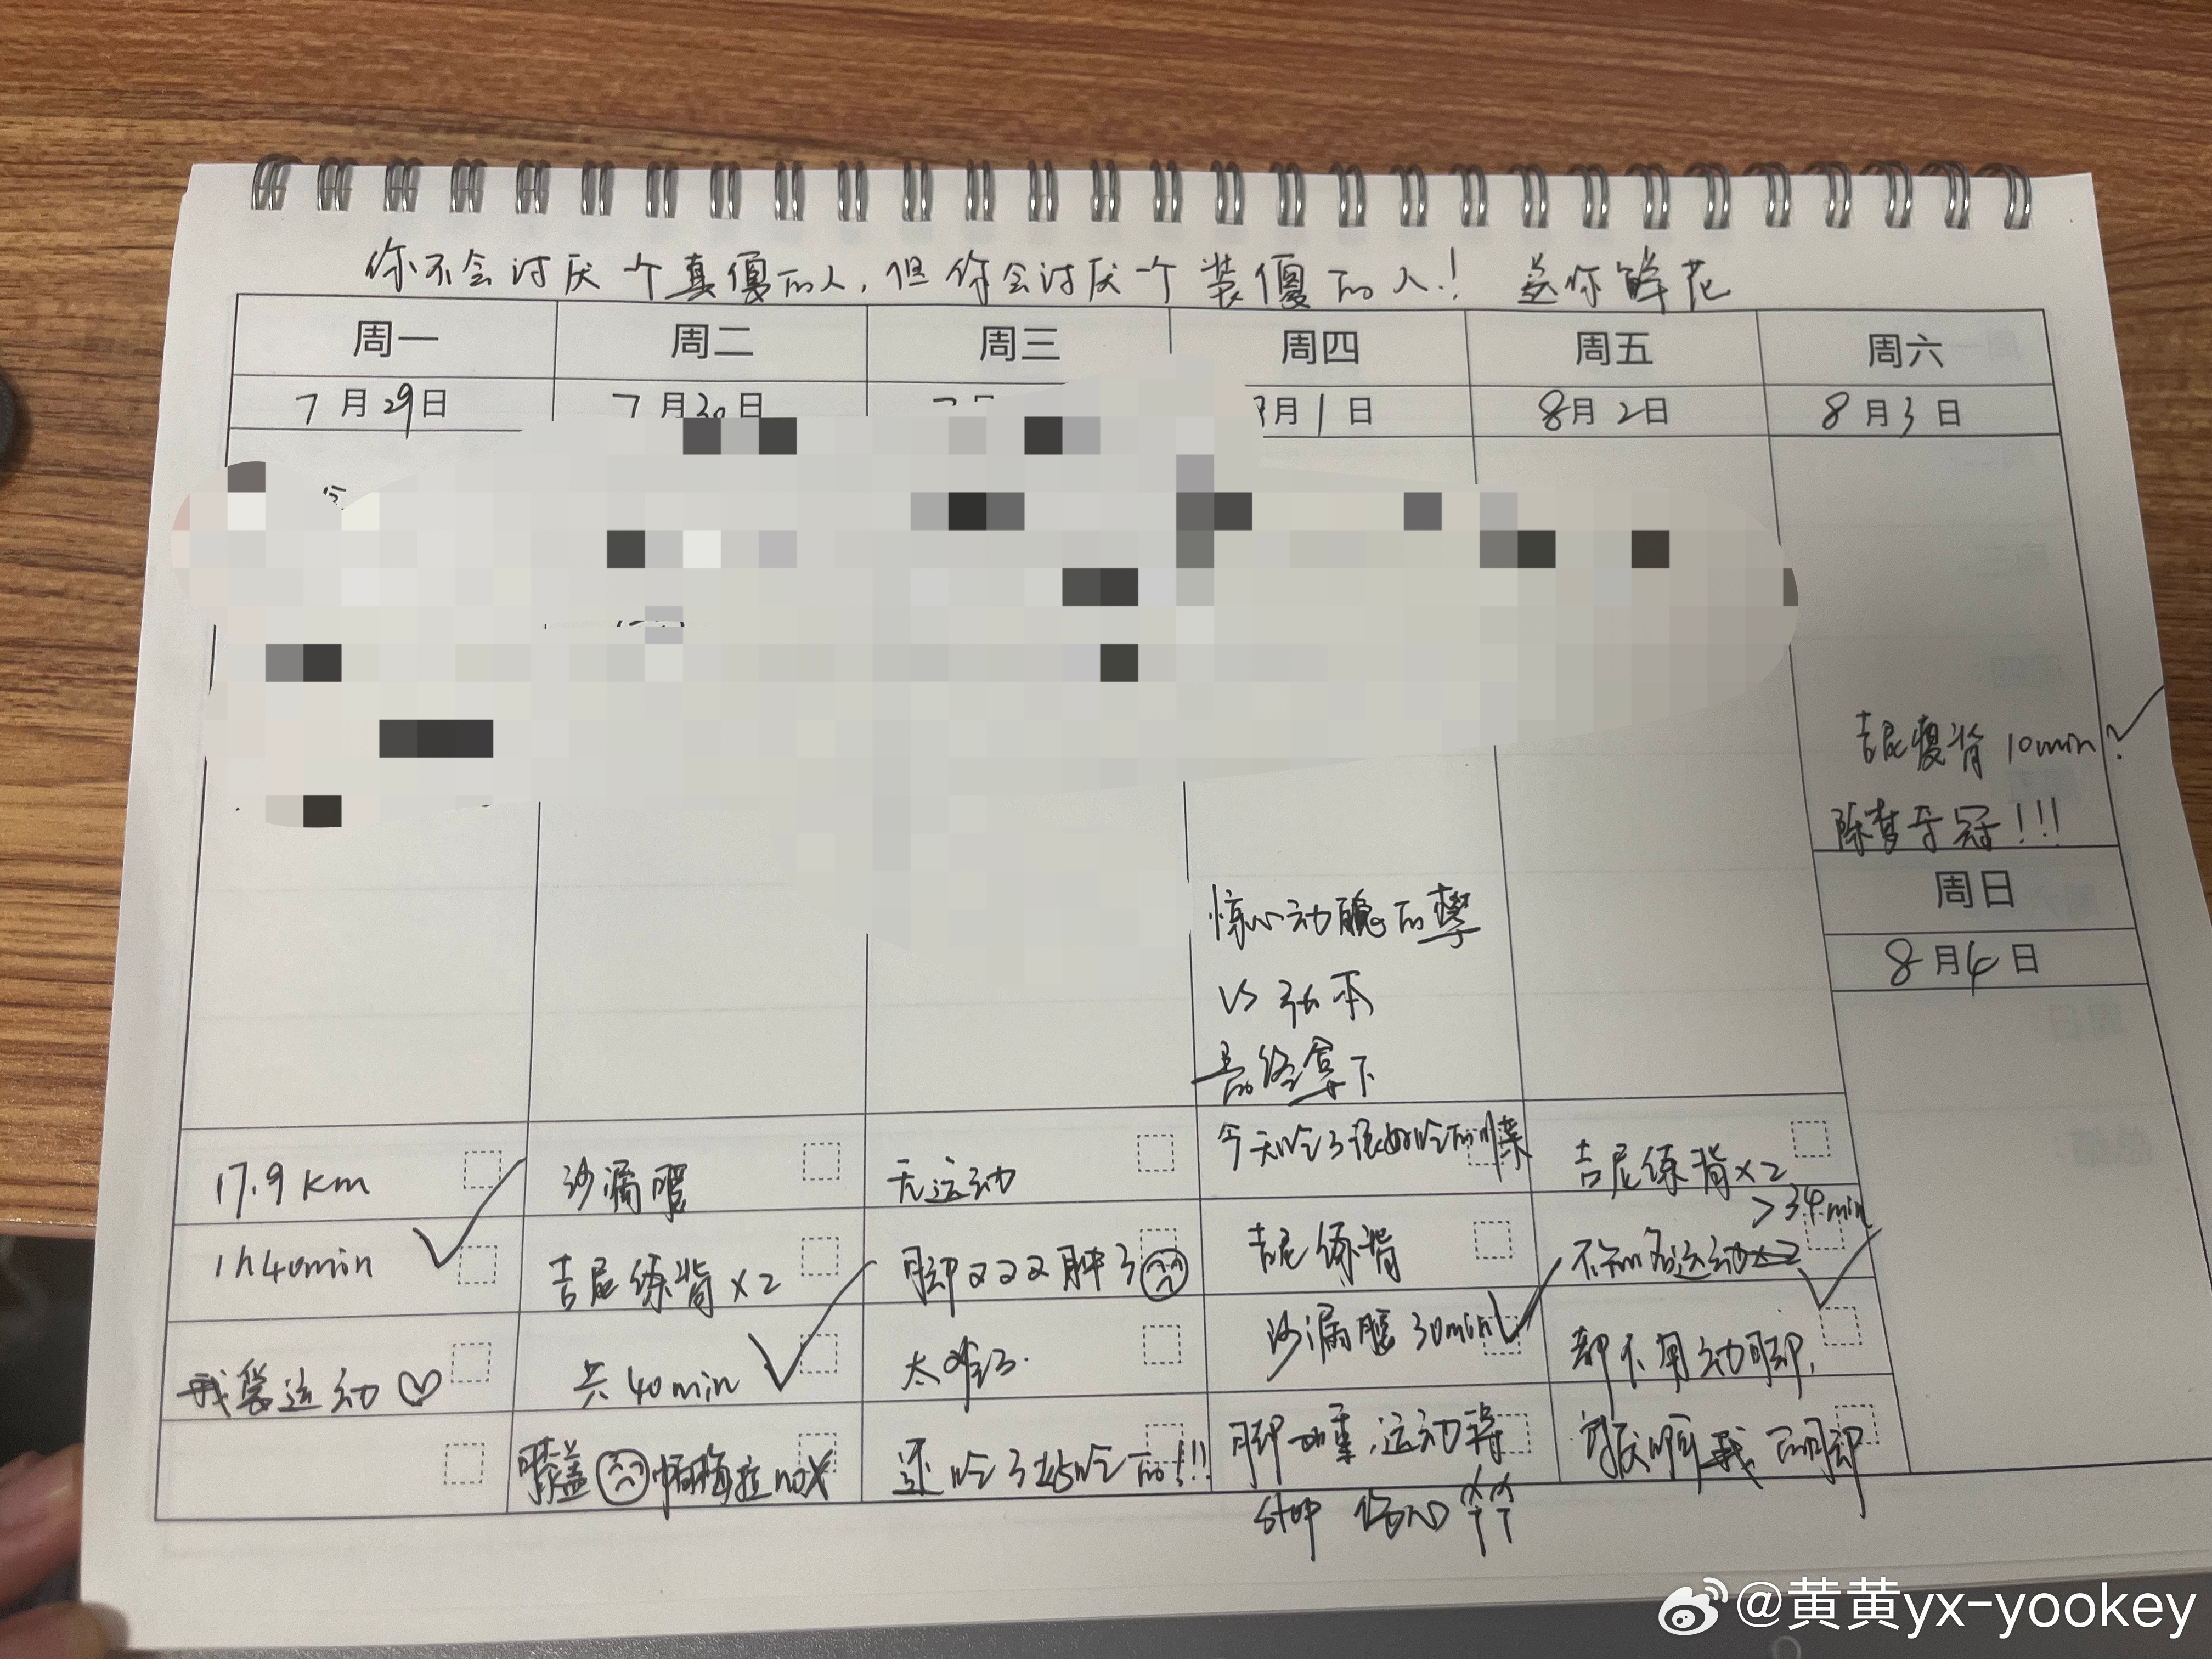 你不会讨厌一个真傻的人，但你会讨厌一个装傻的人！ 送你鲜花
周一 周二 周三 周四 周五 周六
7月29日 7月30日 月1日 8月2日 8月3日
吉尼瘦背 10min
陈梦夺冠！！！
周日
8月4日
惊心动魄的
VS 张本
最终拿下
17.9 km
1h40min
我爱运动
沙漏腰
吉尼练背×2
共40min
膝盖
无运动
脚又又又肿了
太难了.
还吃了垃圾吃的！！！
今天吃了很好吃的川菜
吉尼练背
沙漏腰 30min
脚加重，运动将
stop 伤心
吉尼练背×2
>34min
不知名运动
都不用动脚，
讨厌啊我的脚
@黄黄yx-yookey